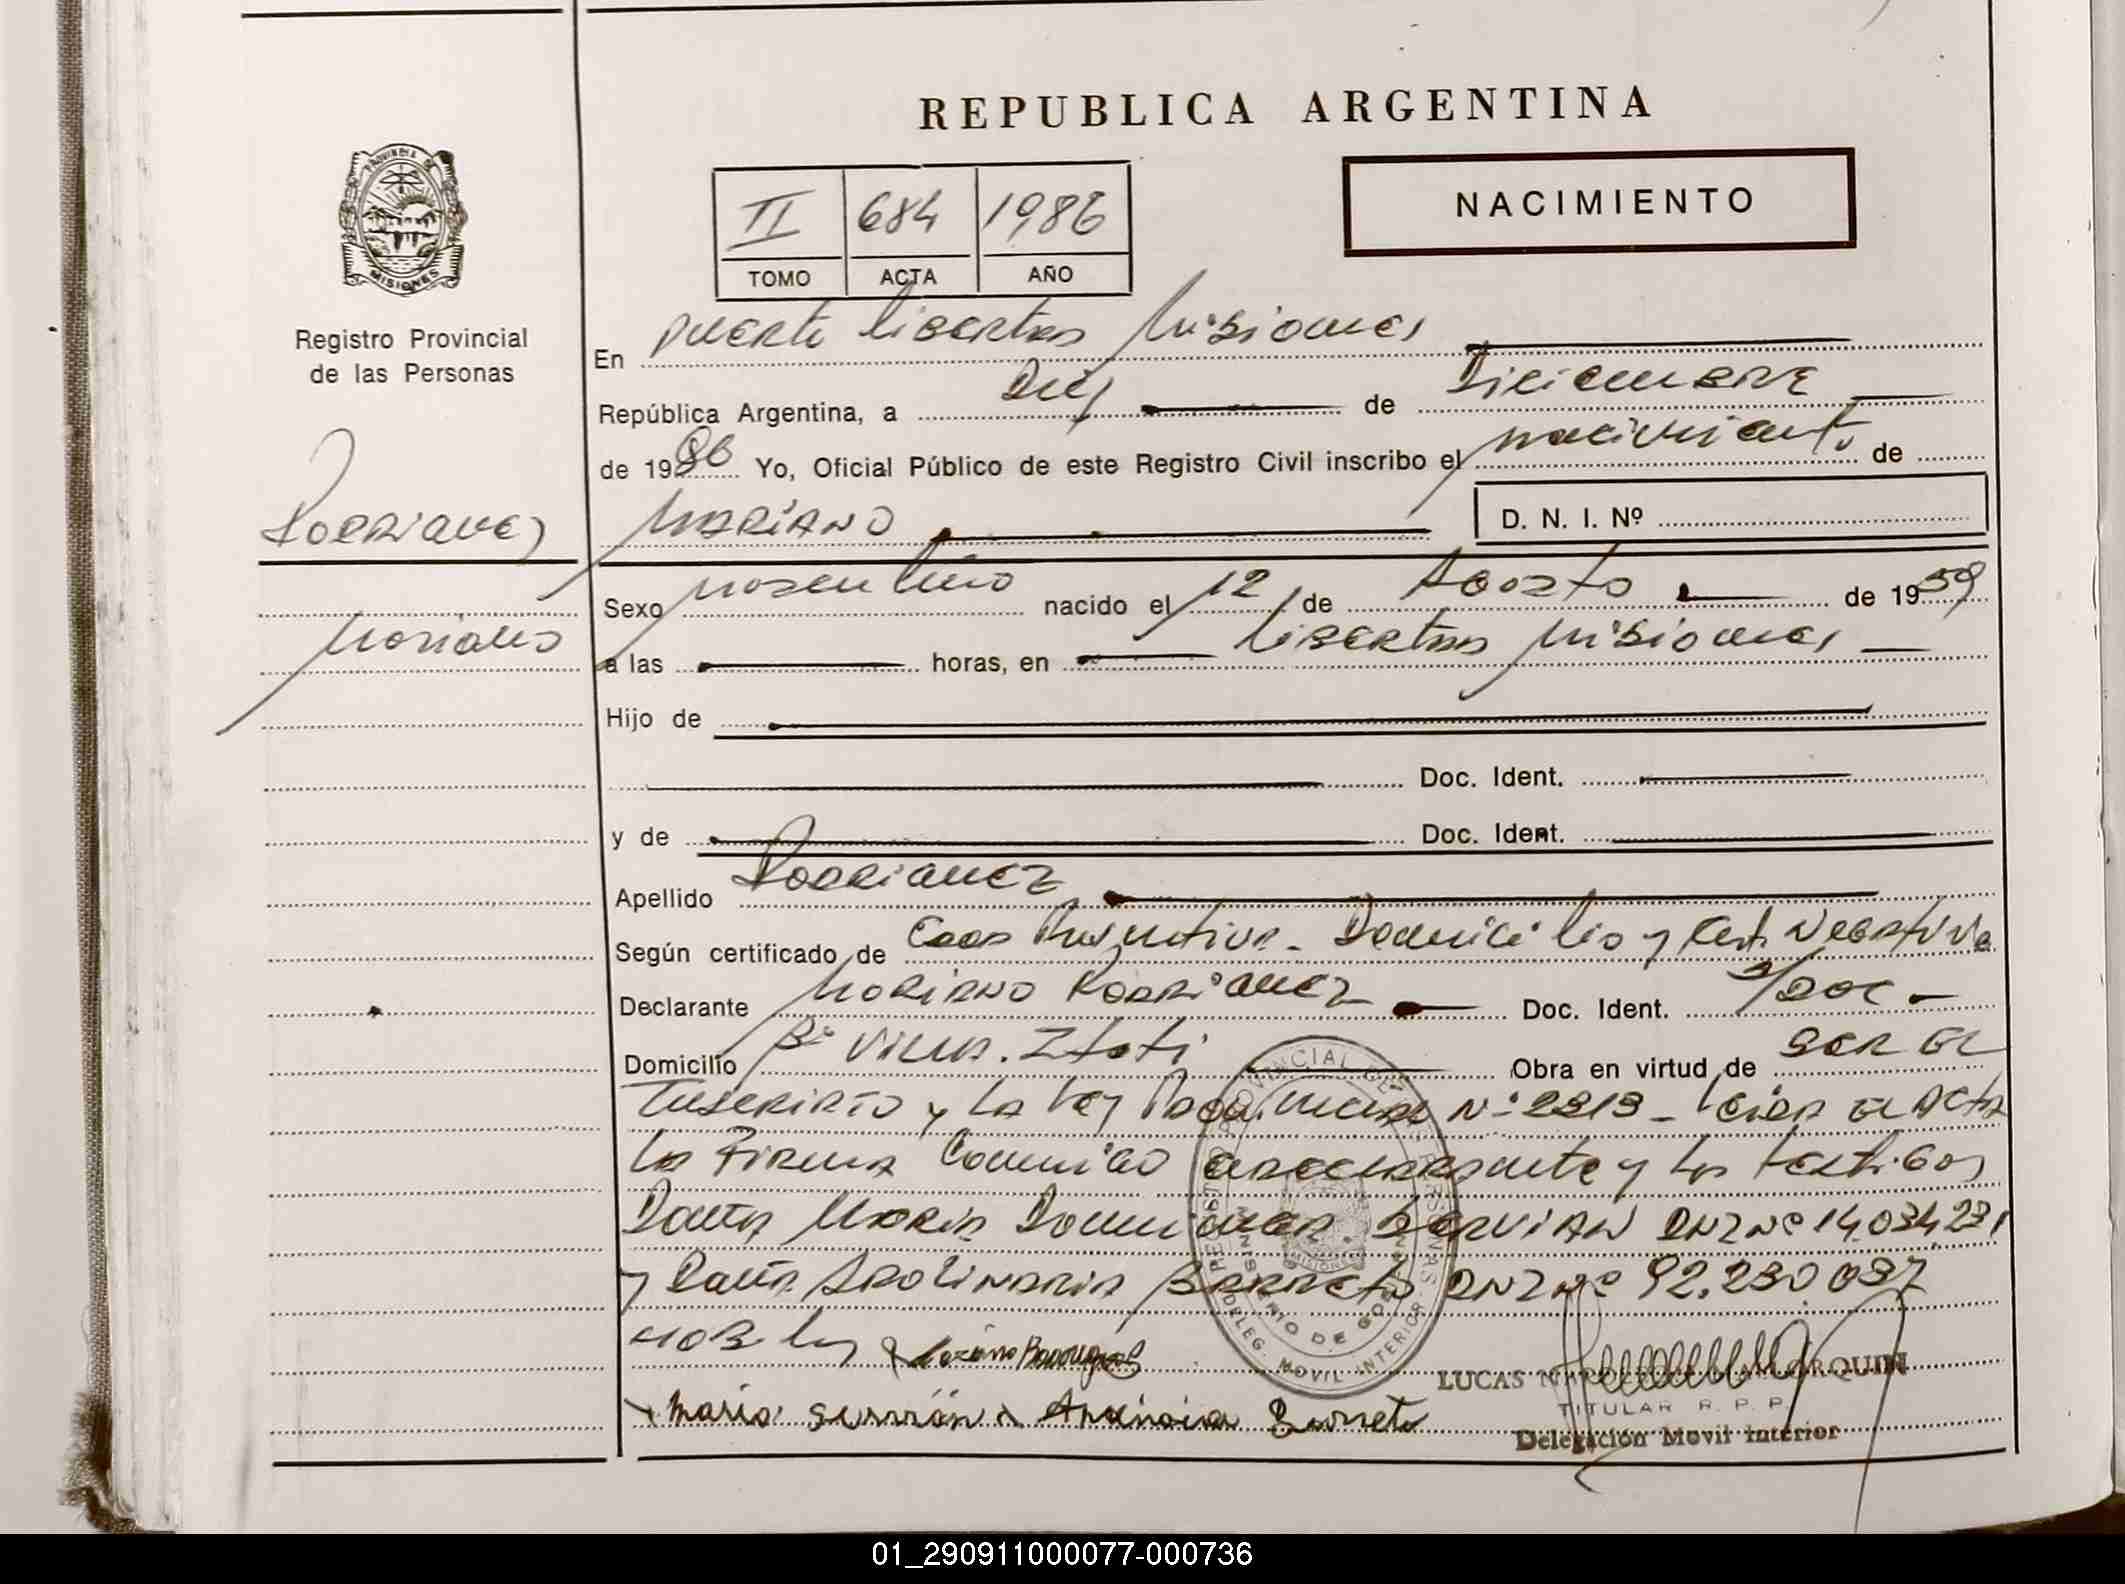 REPUBLICA ARGENTINA
NACIMIENTO
II 684 1986
TOMO ACTA AÑO
PROVINCIA DE MISIONES
Registro Provincial
de las Personas
Rodriguez
Mariano
En Puerto Libertad Misiones
República Argentina, a Diez de Diciembre
de 1986 Yo, Oficial Público de este Registro Civil inscribo el nacimiento de
MARIANO D. N. I. Nº
Sexo masculino nacido el 12 de Agosto de 1959
a las horas, en Libertad Misiones
Hijo de
Doc. Ident.
y de Doc. Ident.
Apellido Rodriguez
Según certificado de Edad Presuntiva - Domicilio y Cert. Negativa
Declarante Mariano Rodriguez Doc. Ident. S/Doc -
Domicilio Bº Virgen Itati Obra en virtud de ser el
Inscripto y La Ley Nº Leida el Acta
La Firma Conmigo el declarante y los testigos
Doña Maria SERVIAN DNI Nº 14.034.231
y Doña Apolinaria Barreto DNI Nº 92.230.037
Mariano Rodriguez
Maria Servián Barreto
REGISTRO PROVINCIAL DE LAS PERSONAS
DELEG. MOVIL INTERIOR
MISIONES
LUCAS MALLORQUIN
TITULAR R. P. P.
Delegación Movil Interior
01_290911000077-000736